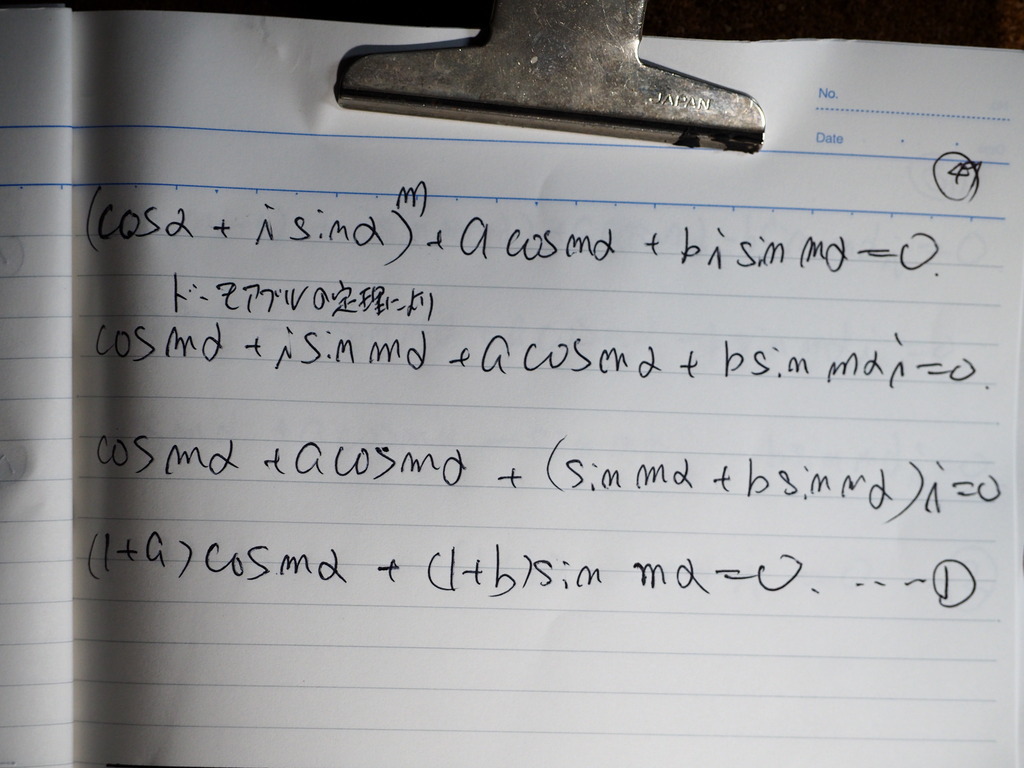 JAPAN
No.
Date
④
(cosα + i sinmα)^m + a cos mα + b i sin mα = 0.
ド・モアブルの定理により
cos mα + i sin mα + a cos mα + b sin mα i = 0.
cos mα + a cos mα + (sin mα + b sin mα) i = 0
(1+a) cos mα + (1+b) sin mα = 0. ---- ①